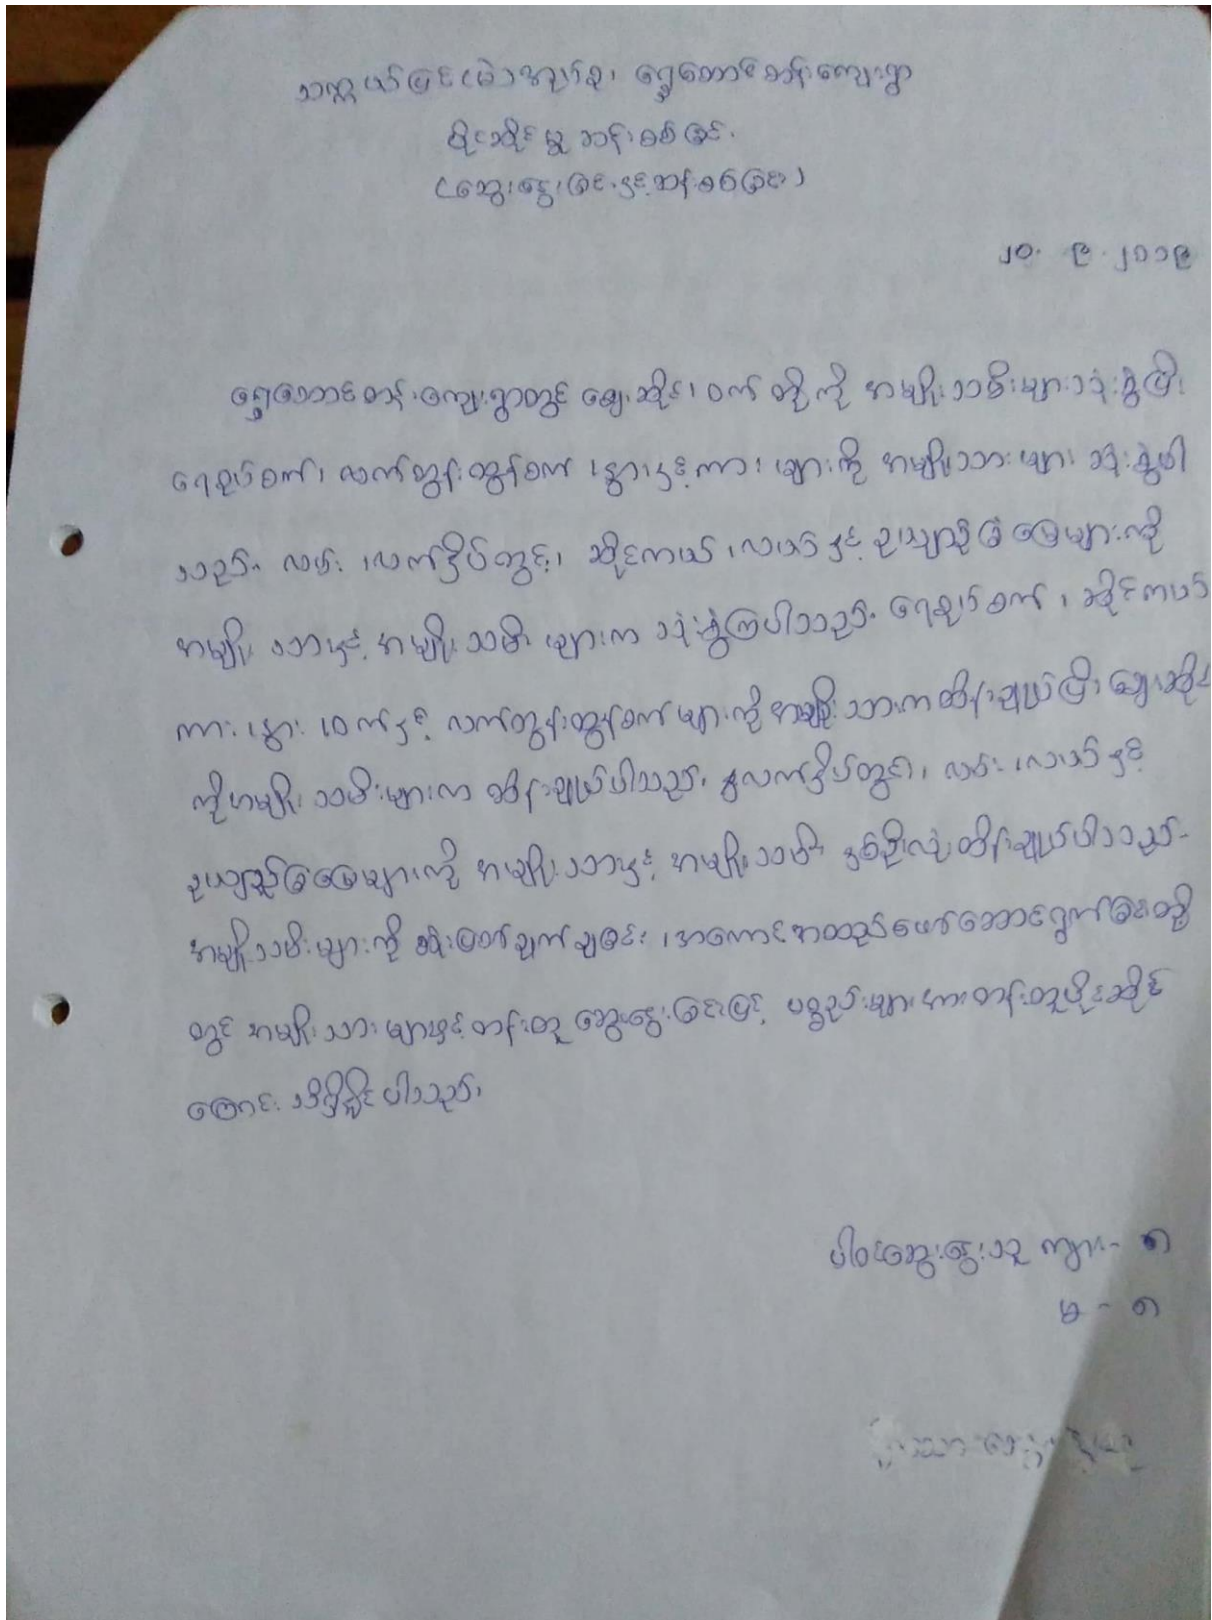 သက္ကယ်ပြင်(မဲ)အုပ်စု၊ ရွှေတောင်တန်းကျေးရွာ
ပိုင်ဆိုင်မှု ဆန်းစစ်ခြင်း
(ဆွေးနွေးခြင်းနှင့်ဆန်းစစ်ခြင်း)
၂၀. ၉. ၂၀၁၉
ရွှေတောင်တန်းကျေးရွာတွင် ဈေးဆိုင်၊ ဝက် တို့ကို အမျိုးသမီးများသုံးစွဲပြီး
ရေစုပ်စက်၊ လက်တွန်းထွန်စက် ၊နွား၊နှင့်ကား ၊ များကို အမျိုးသားများ သုံးစွဲပါ
သည်။ လမ်း ၊လက်နှိပ်တွင်း၊ ဆိုင်ကယ် ၊လယာ်နှင့် ဥယျာဉ်ခြံမြေများကို
အမျိုးသားနှင့် အမျိုးသမီးများက သုံးစွဲကြပါသည်။ ရေစုပ်စက် ၊ ဆိုင်ကယ်
ကား ၊နွား ၊ဝက်နှင့် လက်တွန်းထွန်စက်များကို အမျိုးသားကထိန်းချုပ်ပြီး ဈေးဆိုင်
ကိုအမျိုးသမီးများက ထိန်းချုပ်ပါသည်။ လက်နှိပ်တွင်း၊ လမ်း ၊လယာ်နှင့်
ဥယျာဉ်ခြံမြေများကို အမျိုးသားနှင့် အမျိုးသမီး နှစ်ဦးလုံးထိန်းချုပ်ပါသည်။
အမျိုးသမီးများကို ဆုံးဖြတ်ချက်ချခြင်း ၊အကောင်အထည်ဖော်ဆောင်ရွက်ခြင်းတို့
တွင် အမျိုးသားများနှင့်တန်းတူ ဆွေးနွေးခြင်းဖြင့် ပစ္စည်းများအားတန်းတူပိုင်ဆိုင်
ကြောင်း သိရှိနိုင်ပါသည်။
ပါဝင်ဆွေးနွေးသူ ကျား - ၈
မ - ၈